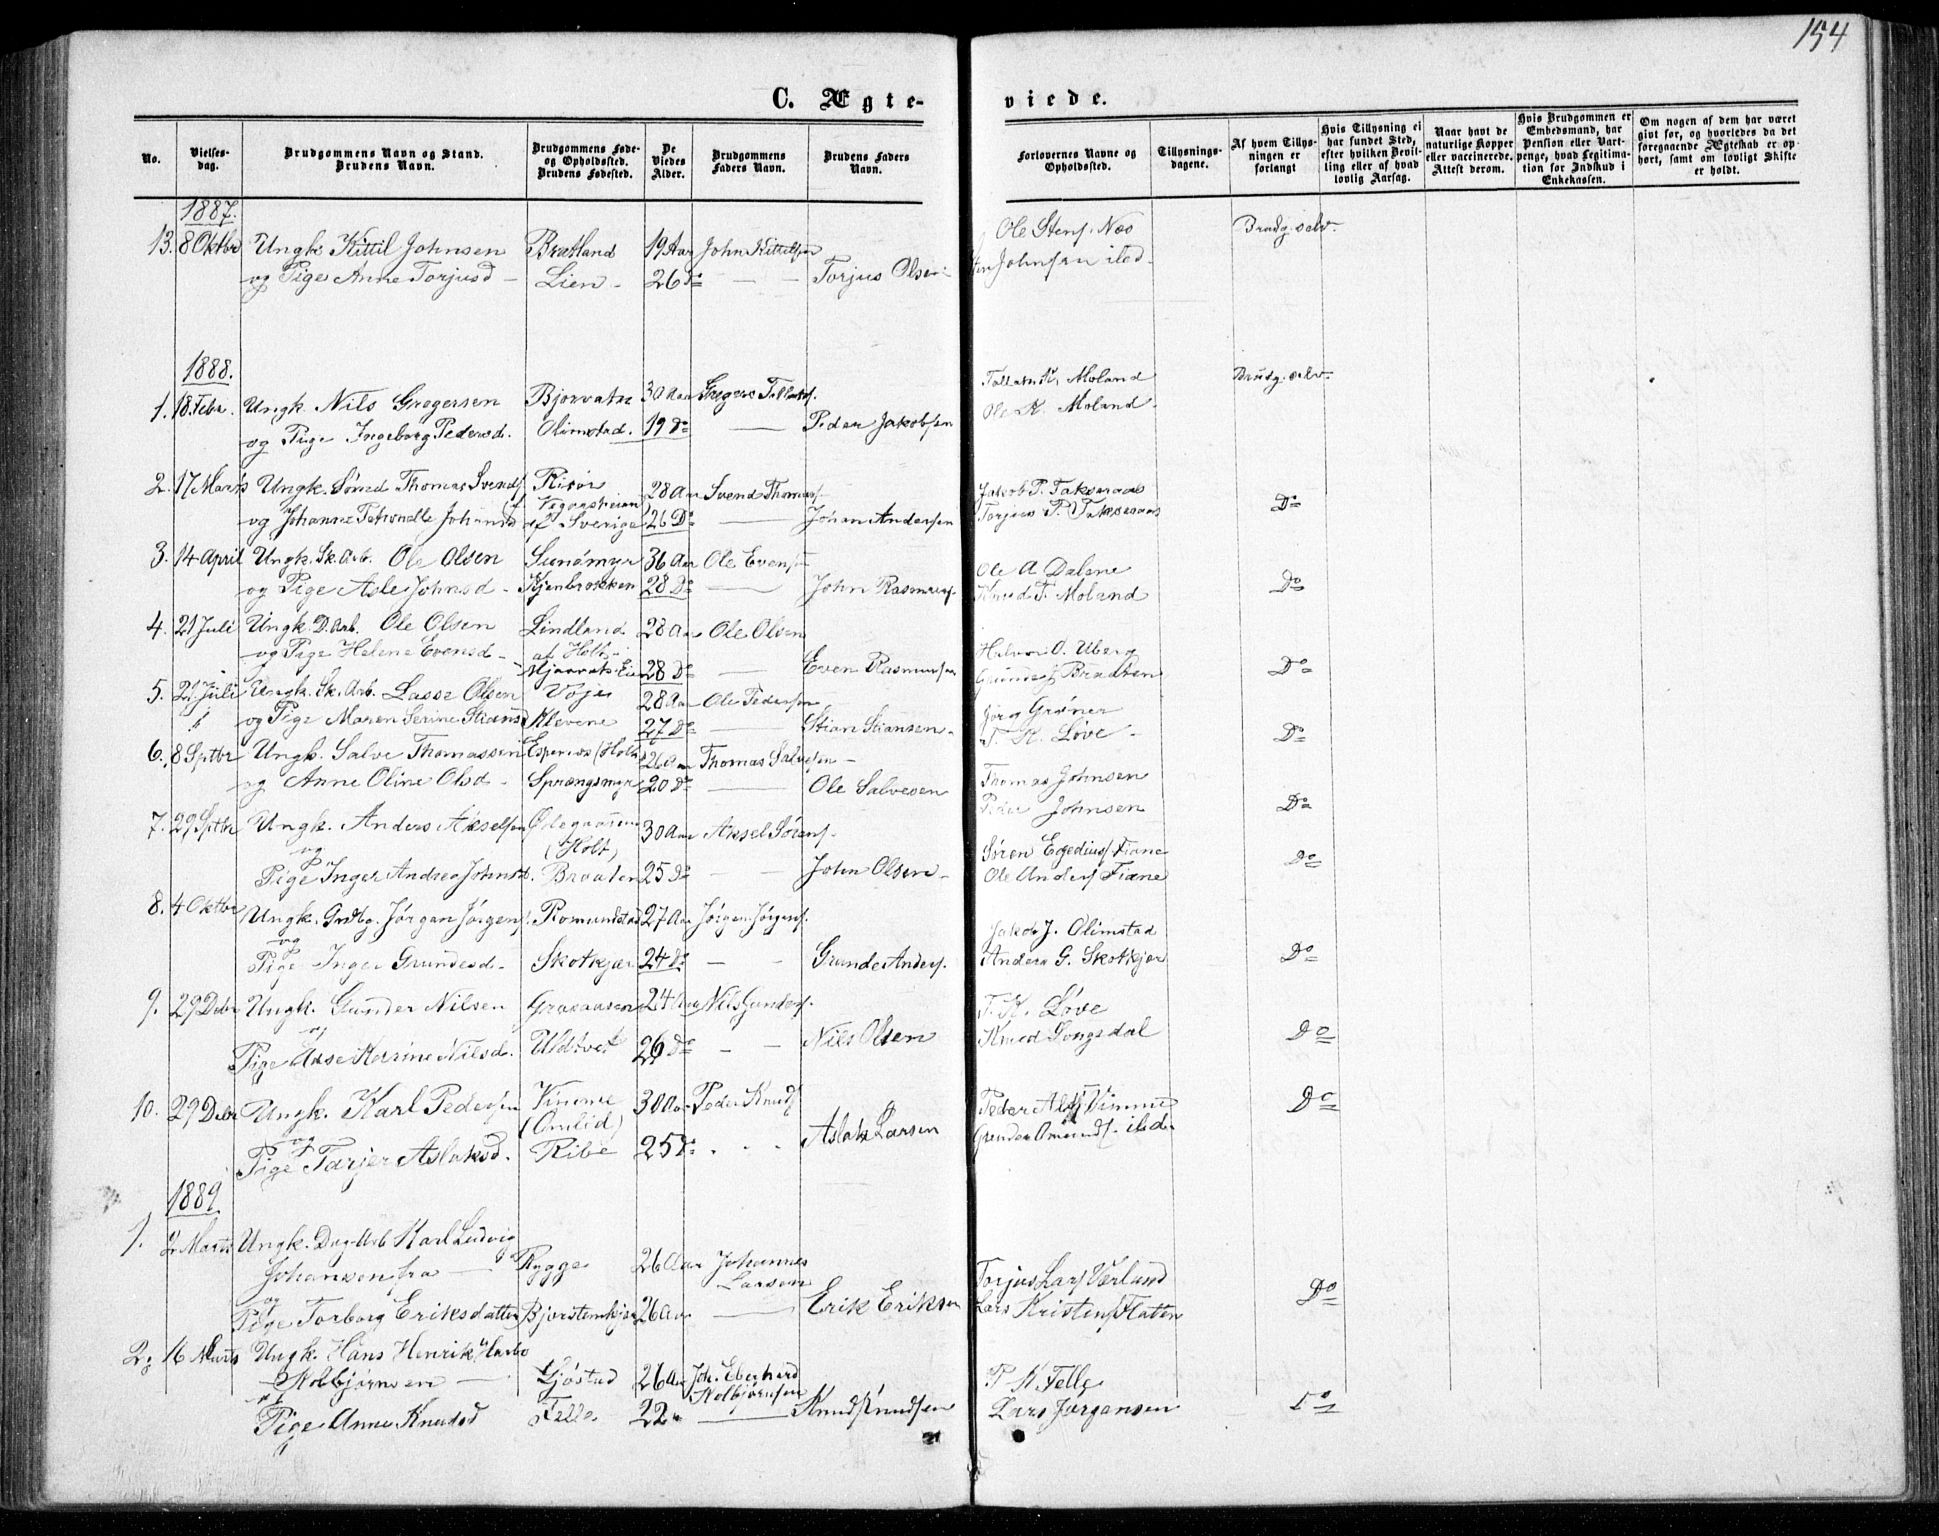 154
C. Ægte-
viede.
No.
Vielses-
dag.
Brudgommens Navn og Stand.
Brudens Navn.
Brudgommens Føde-
og Opholdssted.
Brudens Fødested.
De
Viedes
Alder.
Brudgommens
Faders Navn.
Brudens Faders
Navn.
Forlovernes Navne og
Opholdssted.
Tillysnings-
dagene.
Af hvem Tillys-
ningen er
forlangt
Hvis Tillysning ei
har fundet Sted,
efter hvilken Bevil-
ling eller af hvad
lovlig Aarsag.
Naar havt de
naturlige Kopper
eller vaccinerede.
Attest derom.
Hvis Brudgommen er
Embedsmand, har
Pension eller Vart-
penge, hvad Legitima-
tion for Indskud i
Enkekassen.
Om nogen af dem har været
givt før, og hvorledes da det
foregaaende Ægteskab er op-
hørt, samt om lovligt Skifte
er holdt.
1887.
13. 8 Oktbr Ungk. Kittil Johnsen Bratland 19 Aar John Kittelsen Ole Stens. Næs Brudg. selv.
og Pige Anne Torjusd - Lien - 26 Do — — Torjus Olsen Johnsen ibd.
1888.
1. 18 Febr. Ungk. Nils Gregersen Bjorvatn 30 Aar Gregers Tellefs. Moland Brudg. selv.
og Pige Ingeborg Pedersd. Olimstad. 19 Do — Peder Jakobsen Ole K. Moland.
2. 17 Marts Ungk. Sømd Thomas Svends. Risør 28 Aar Svend Thomas. Jakob P. Takseraas
og Johanne Petronelle Johansd af Sverige 26 Do — Johan Andersen Torjus P. Takseraas Do
3. 14 April Ungk. Sk. Arb. Ole Olsen Sunsmyr 36 Aar Ole Evens. Ole A Dalene
og Pige Asle Johnsd - Kjenbrokken 28 Do — John Rasmuss. Knud T. Moland Do
4. 21 Juli Ungk. D. Arb. Ole Olsen Lindland 28 Aar Ole Olsen
og Pige Helene Evensd - af Holt - Halvor O. Uberg
28 Do — Even Rasmussen Do
5. 21 Juli Ungk. Sk. Arb. Lasse Olsen Voje 28 Aar Ole Pedersen
og Pige Maren Serine Stiansd Klevene 27 Do — Stian Stiansen - Jørg Grøner
6. 8 Sptbr Ungk. Salve Thomassen Espenes (Holt) 26 Aar Thomas Salvesen - T. K. Løve - Do
og Anne Oline Olsd - Sprængsmyr 20 Do — Ole Salvesen Thomas Johnsen
7. 29 Sptbr Ungk. Anders Akselsen 30 Aar Aksel Sørens. Peder Johnsen Do
og (Holt) Søren Egedius. Fiane
Pige Inger Andrea Johnsd. Braaten 25 Do - - John Olsen - Ole Anders. Fiane Do
8. 4 Oktbr Ungk. Grdbg. Jørgen Jørgens. Romundstad 27 Aar Jørgen Jørgens. Jakob J. Olimstad
og
Pige Inger Grundesd - Skotkjær 24 Do - - Grunde Anders. Anders G. Skotkjær Do
9. 29 Debr Ungk. Gunder Nilsen Graaaasen 24 Aar Nils Gunders. T. K. Løve
og
Pige Aase Karine Nilsd. Uldtvet 26 Do - - Nils Olsen Knud Songedal Do
10. 29 Debr Ungk. Karl Pedersen Vimme 30 Aar Peder Knuds. Peder Alfs. Vimme Do
og (Omlid)
Pige Tarjer Aslaksd. Ribe 25 Do - - Aslak Larsen Gunder Omunds. ibd.
1889.
1. 2 Marts Ungk. Dag-Arb Karl Ludvig
Johansen fra — Rygge 26 Aar Johannes Larsen Torjus Lars. Værland
og
Pige Torborg Eriksdatter Bjorstemkjær 26 Aar — Erik Eriksen Lars Kristens. Flaten Do
2. 16 Marts Ungk. Hans Henrik Harbo
Kolbjørnsen — Gjøstad 26 Aar Joh. Eberhard Kolbjørnsen P K. Felle
og
Pige Anne Knudsd Felle 22 " — Knud Knudsen Lars Jørgensen Do